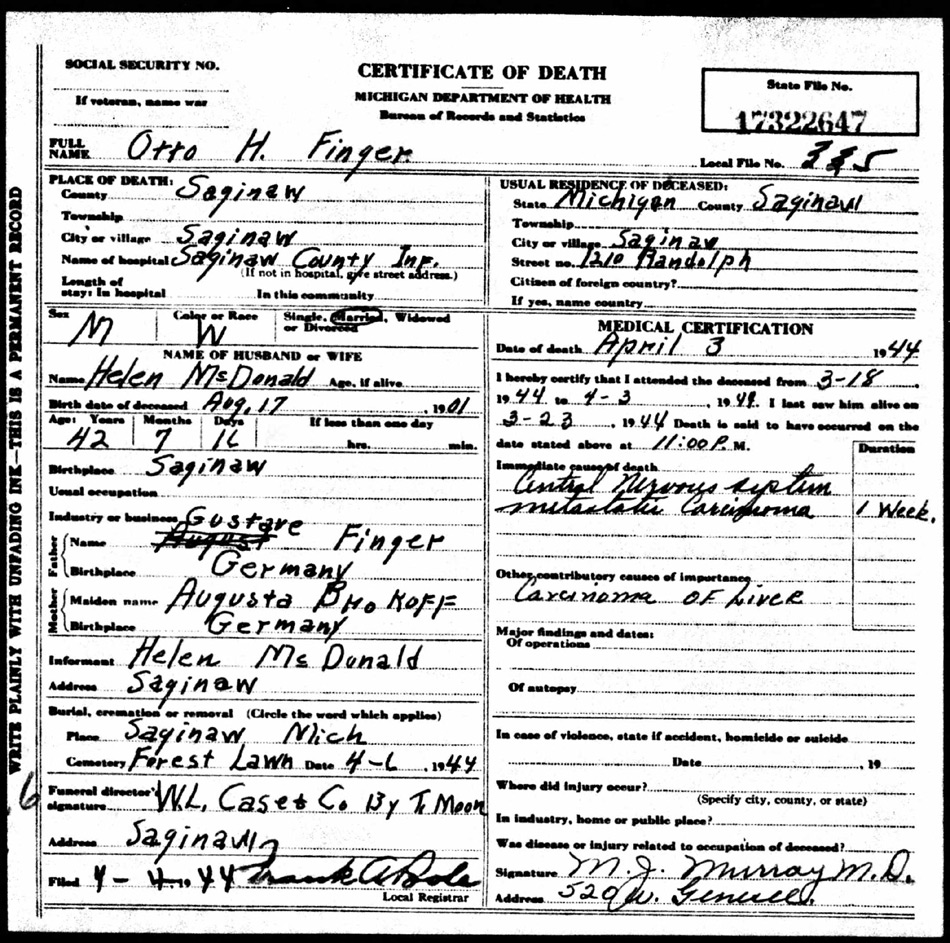 SOCIAL SECURITY NO.
If veteran, name war
CERTIFICATE OF DEATH
MICHIGAN DEPARTMENT OF HEALTH
Bureau of Records and Statistics
State File No.
17322647
Local File No. 335
FULL NAME Otto H. Finger
WRITE PLAINLY WITH UNFADING INK—THIS IS A PERMANENT RECORD
PLACE OF DEATH:
County Saginaw
Township
City or village Saginaw
Name of hospital Saginaw County Inf.
(If not in hospital, give street address.)
Length of stay: In hospital In this community
Sex M Color or Race W Single, Married, Widowed or Divorced
NAME OF HUSBAND or WIFE
Name Helen McDonald Age, if alive
Birth date of deceased Aug. 17 , 1901
Age: Years Months Days If less than one day
42 7 16 hrs. min.
Birthplace Saginaw
Usual occupation
Industry or business
Father
Name Gustave August Finger
Birthplace Germany
Mother
Maiden name Augusta
Birthplace Germany
Informant Helen McDonald
Address Saginaw
Burial, cremation or removal (Circle the word which applies)
Place Saginaw Mich
Cemetery Forest Lawn Date 4-6 , 1944
6
Funeral director's signature W.L. Case & Co By T. Moon
Address Saginaw
Filed 4-4 1944 Frank A
Local Registrar
USUAL RESIDENCE OF DECEASED:
State Michigan County Saginaw
Township
City or village Saginaw
Street no. 1210 Randolph
Citizen of foreign country?
If yes, name country
MEDICAL CERTIFICATION
Date of death April 3 1944
I hereby certify that I attended the deceased from 3-18
1944 to 4-3 , 1944. I last saw him alive on
3-23 , 1944 Death is said to have occurred on the
date stated above at 11:00 P. M.
Duration
Immediate cause of death
Central Nervous system
metastatic Carcinoma 1 Week.
Other contributory causes of importance
Carcinoma of Liver
Major findings and dates:
Of operations
Of autopsy
In case of violence, state if accident, homicide or suicide
Date , 19
Where did injury occur?
(Specify city, county, or state)
In industry, home or public place?
Was disease or injury related to occupation of deceased?
Signature M. J. Murray M.D.
Address 520 W. Genesee.